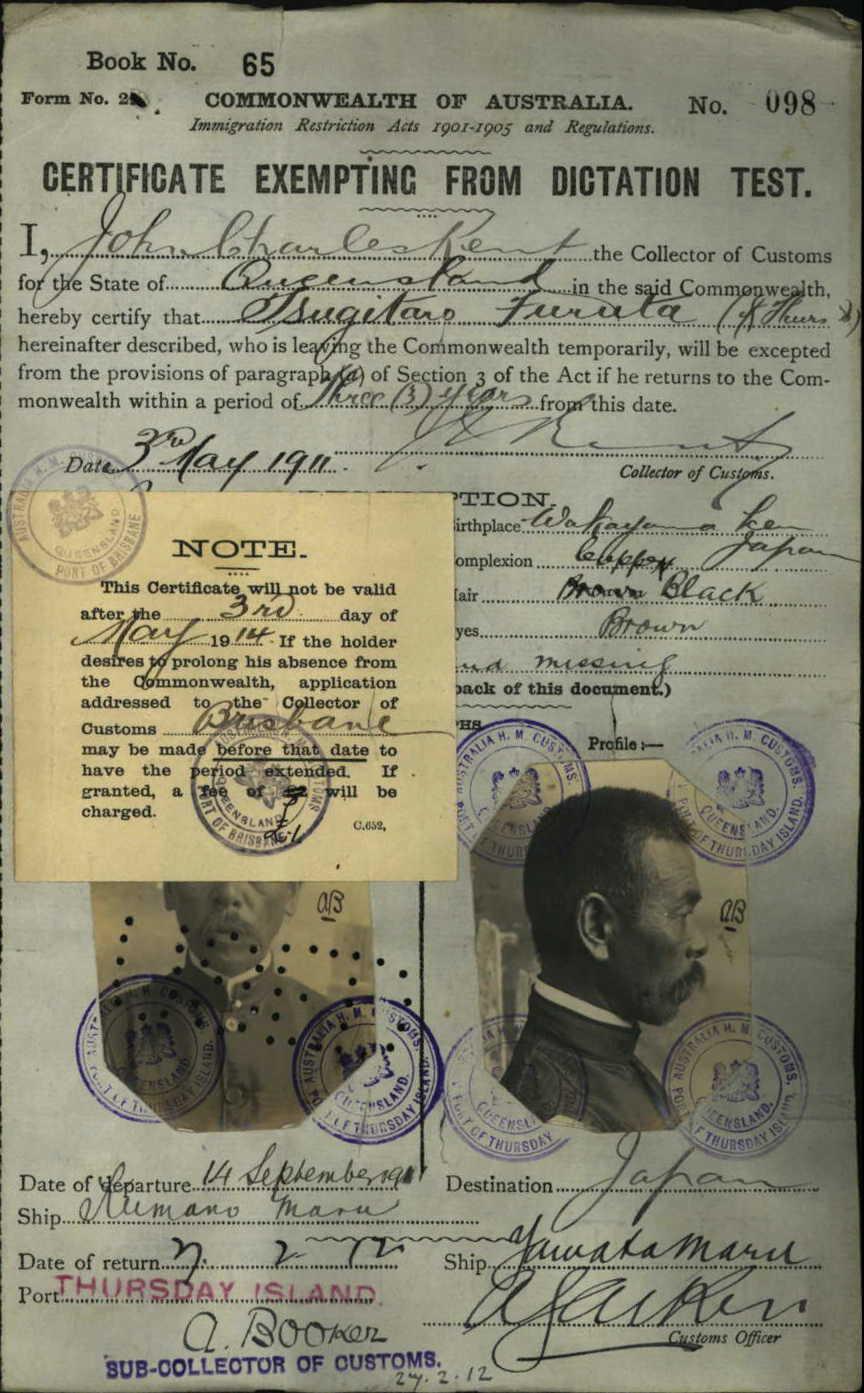 Book No. 65
Form No. 2
COMMONWEALTH OF AUSTRALIA.
No. 098
Immigration Restriction Acts 1901-1905 and Regulations.
CERTIFICATE EXEMPTING FROM DICTATION TEST.
I, John Charles Kent the Collector of Customs
for the State of Queensland in the said Commonwealth,
hereby certify that Tsugitaro Furuta (of Thurs
hereinafter described, who is leaving the Commonwealth temporarily, will be excepted
from the provisions of paragraph (a) of Section 3 of the Act if he returns to the Com-
monwealth within a period of Three (3) years from this date.
Date 3rd May 1911.
Collector of Customs.
PTION.
irthplace Wakayama Ken
Japan
omplexion Copper
air Brown Black
yes Brown
nd missing
back of this document.)
PHS
Profile:—
NOTE.
This Certificate will not be valid
after the 3rd day of
May 1914. If the holder
desires to prolong his absence from
the Commonwealth, application
addressed to the Collector of
Customs Brisbane
may be made before that date to
have the period extended. If
granted, a fee of £1 will be
charged.
C.652,
AUSTRALIA H. M. CUSTOMS
QUEENSLAND
PORT OF BRISBANE
AUSTRALIA H. M. CUSTOMS.
QUEENSLAND.
PORT OF THURSDAY ISLAND.
AB
AB
Date of departure 14 September 1911
Destination Japan
Ship Kumano Maru
Date of return 27. 2. 12
Ship Yawata Maru
Port THURSDAY ISLAND.
A. Booker
SUB-COLLECTOR OF CUSTOMS.
27.2.12
Customs Officer